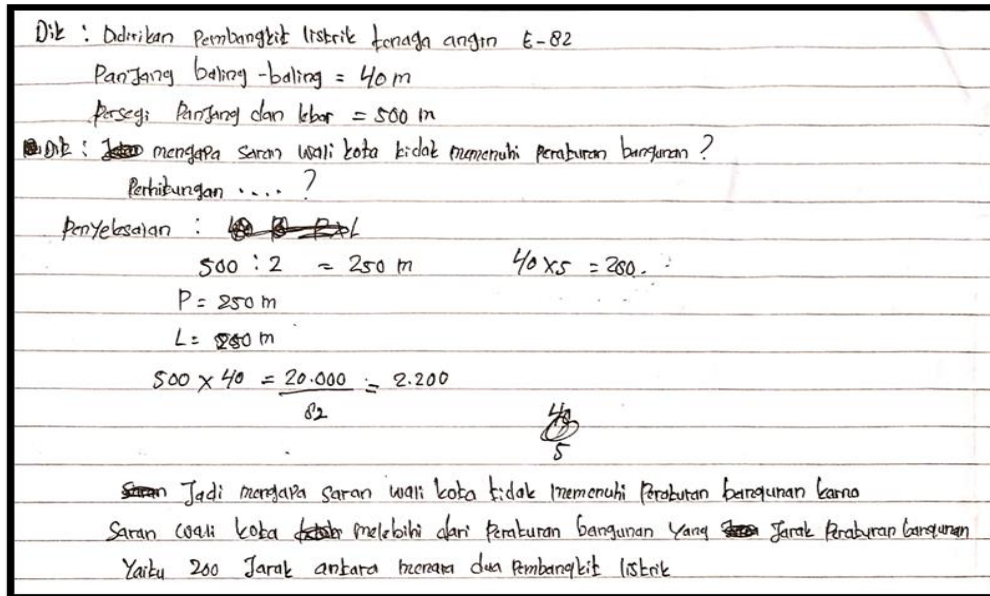 Dik : Didirikan Pembangkit listrik tenaga angin E-82
Panjang baling-baling = 40 m
Persegi Panjang dan lebar = 500 m
Dit : mengapa saran wali kota tidak memenuhi Peraturan bangunan ?
Perhitungan .... ?
Penyelesaian :
500 : 2 = 250 m 40 x 5 = 200.
P = 250 m
L = 250 m
500 x 40 = 20.000 = 2.200
82
40
5
Jadi mengapa saran wali kota tidak memenuhi Peraturan bangunan karno
Saran wali kota melebihi dari Peraturan bangunan yang Jarak Peraturan bangunan
Yaitu 200 Jarak antara menara dua Pembangkit listrik